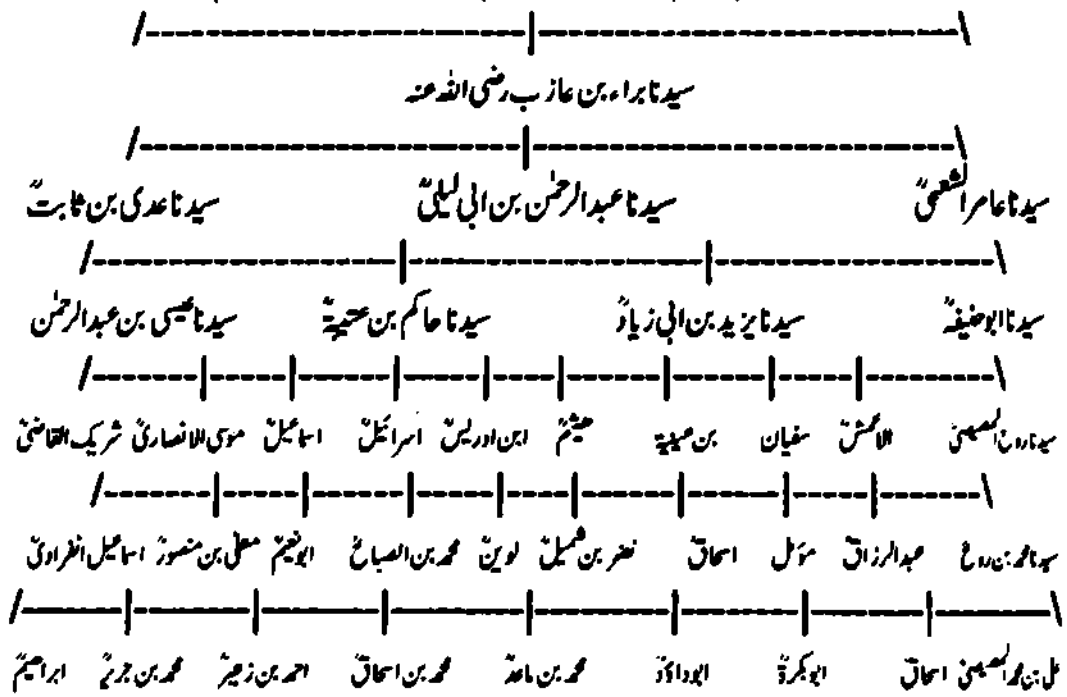 سیدنا براء بن عازب رضی اللہ عنہ
سیدنا عامر الشعبیؒ سیدنا عبدالرحمٰن بن ابی لیلیٰؒ سیدنا عدی بن ثابتؒ
سیدنا ابوحنیفہؒ سیدنا یزید بن ابی زیادؒ سیدنا حاکم بن عتیبہؒ سیدنا عیسی بن عبدالرحمٰن
سیدنا روح المصیصیؒ الاعمشؒ سفیان بن عیینہ ھیثمؒ ابن ادریسؒ اسرائیلؒ اسماعیلؒ موسی الانصاریؒ شریک القاضیؒ
سیدنا محمد بن روحؒ عبدالرزاقؒ مؤمل اسحاقؒ نضر بن شمیلؒ لوینؒ محمد بن الصباحؒ ابونعیمؒ معلی بن منصورؒ اسماعیل انفرادیؒ
علی بن محمد المصیصیؒ اسحاقؒ ابوبکرۃؒ ابوداؤدؒ محمد بن ماعدؒ محمد بن اسحاقؒ احمد بن زھیرؒ محمد بن جریرؒ ابراھیمؒ